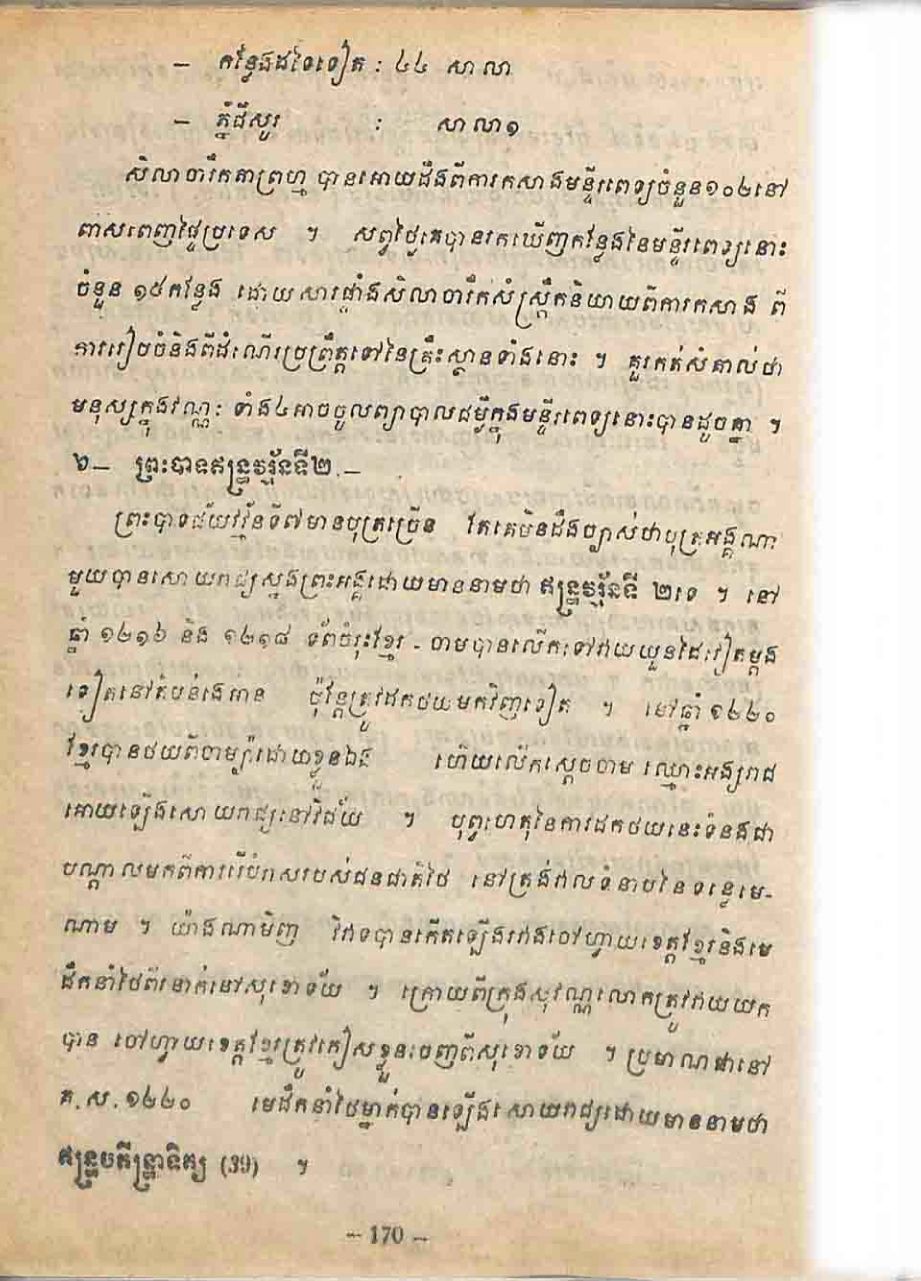 – កន្លែងដទៃទៀត : ៤៤ សាលា
– ភ្នំជីសូរ : សាលា១
សិលាចារឹកតាព្រហ្ម បានអោយដឹងពីការកសាងមន្ទីរពេទ្យចំនួន១០២នៅ
ពាសពេញផ្ទៃប្រទេស ។ សព្វថ្ងៃគេបានរកឃើញកន្លែងនៃមន្ទីរពេទ្យនោះ
ចំនួន ១៥កន្លែង ដោយសារផ្ទាំងសិលាចារឹកសំស្ក្រឹតនិយាយពីការកសាង ពី
ការរៀបចំនិងពីដំណើរប្រព្រឹត្តទៅនៃគ្រឹះស្ថានទាំងនោះ ។ គួរកត់សំគាល់ថា
មនុស្សក្នុងវណ្ណៈ ទាំង៤អាចចូលព្យាបាលជម្ងឺក្នុងមន្ទីរពេទ្យនោះបានដូចគ្នា ។
៦– ព្រះបាទឥន្ទ្រវរ្ម័នទី២.–
ព្រះបាទជ័យវរ្ម័នទី៧មានបុត្រច្រើន តែគេមិនដឹងច្បាស់ថាបុត្រអង្គណា
មួយបានសោយរាជ្យស្នងព្រះអង្គដោយមាននាមថា ឥន្ទ្រវរ្ម័នទី ២ទេ ។ នៅ
ឆ្នាំ ១២១៦ និង ១២១៨ ទ័ពចំរុះខ្មែរ - ចាមបានលើកទៅវាយយួនដៃវៀតម្តង
ទៀតនៅតំបន់ងេអាន ប៉ុន្តែត្រូវដកថយមកវិញទៀត ។ នៅឆ្នាំ ១២២០
ខ្មែរបានថយពីចាម្ប៉ាដោយខ្លួនឯង ហើយលើកស្តេចចាម ឈ្មោះអង្សរាជ
អោយឡើងសោយរាជ្យនៅវិជ័យ ។ បុព្វហេតុនៃការដកថយនេះទំនងជា
បណ្តាលមកពីការរើបំរាសរបស់ជនជាតិថៃ នៅត្រង់វាលទំនាបនៃទន្លេមេ-
ណាម ។ យ៉ាងណាមិញ វិវាទបានកើតឡើងរវាងចៅហ្វាយខេត្តខ្មែរនិងមេ
ដឹកនាំថៃពីរនាក់នៅសុខោទ័យ ។ ក្រោយពីក្រុងសុវណ្ណលោកត្រូវវាយយក
បាន ចៅហ្វាយខេត្តខ្មែរត្រូវគៀសខ្លួនចេញពីសុខោទ័យ ។ ប្រមាណជានៅ
គ.ស.១២២០ មេដឹកនាំថៃម្នាក់បានឡើងសោយរាជ្យដោយមាននាមថា
ឥន្ទ្របតីន្ទ្រាទិត្យ (39) ។
– 170 –